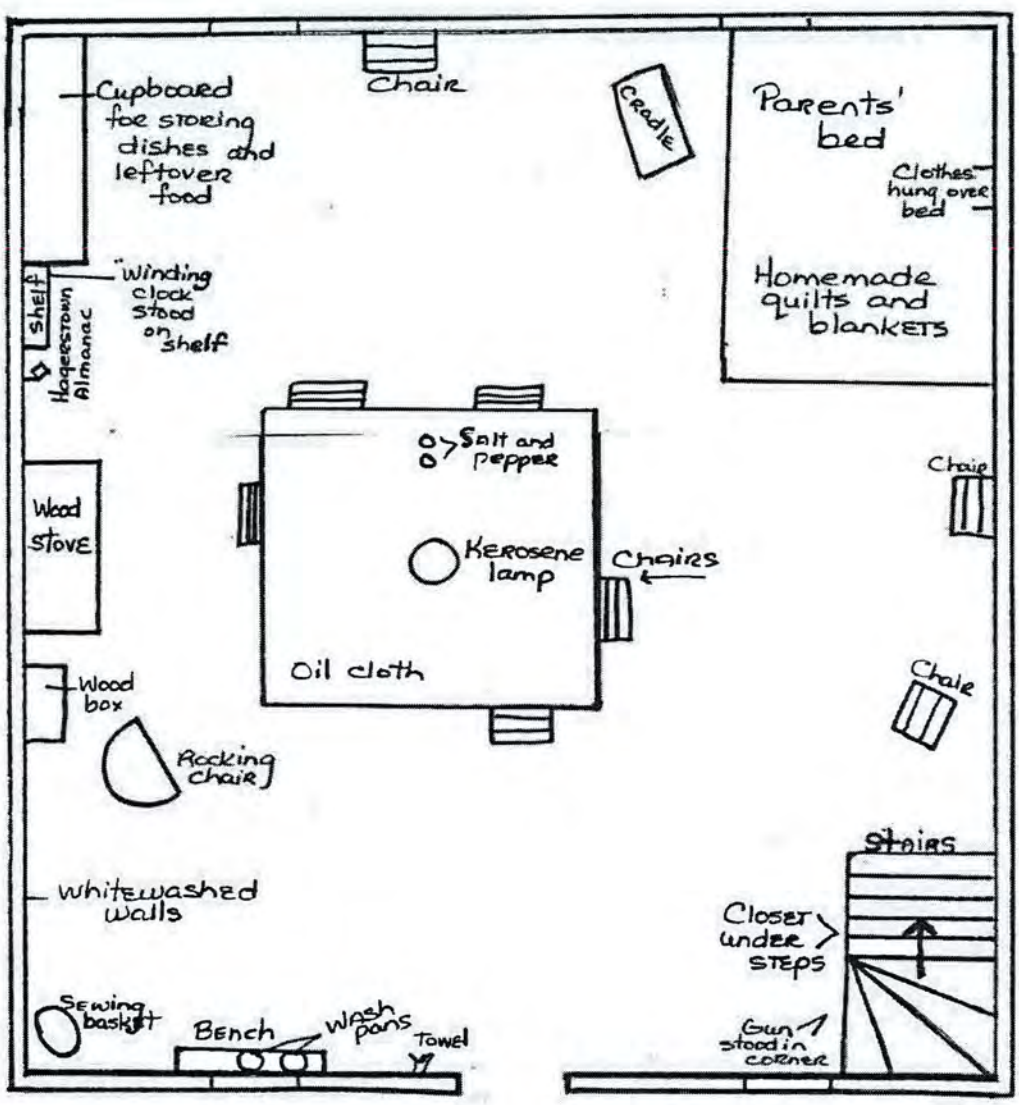 Cupboard
for storing
dishes and
leftover
food
Chair
Cradle
Parents'
bed
Clothes
hung over
bed
Homemade
quilts and
blankets
Shelf
"Winding
clock
stood
on
shelf
Hagerstown
Almanac
Salt and
pepper
Wood
stove
Kerosene
lamp
Chairs
Chair
Oil cloth
Wood
box
Rocking
chair
Chair
Stairs
Whitewashed
walls
Closet
under
steps
Sewing
basket
Bench
Wash
pans
Towel
Gun
stood in
corner